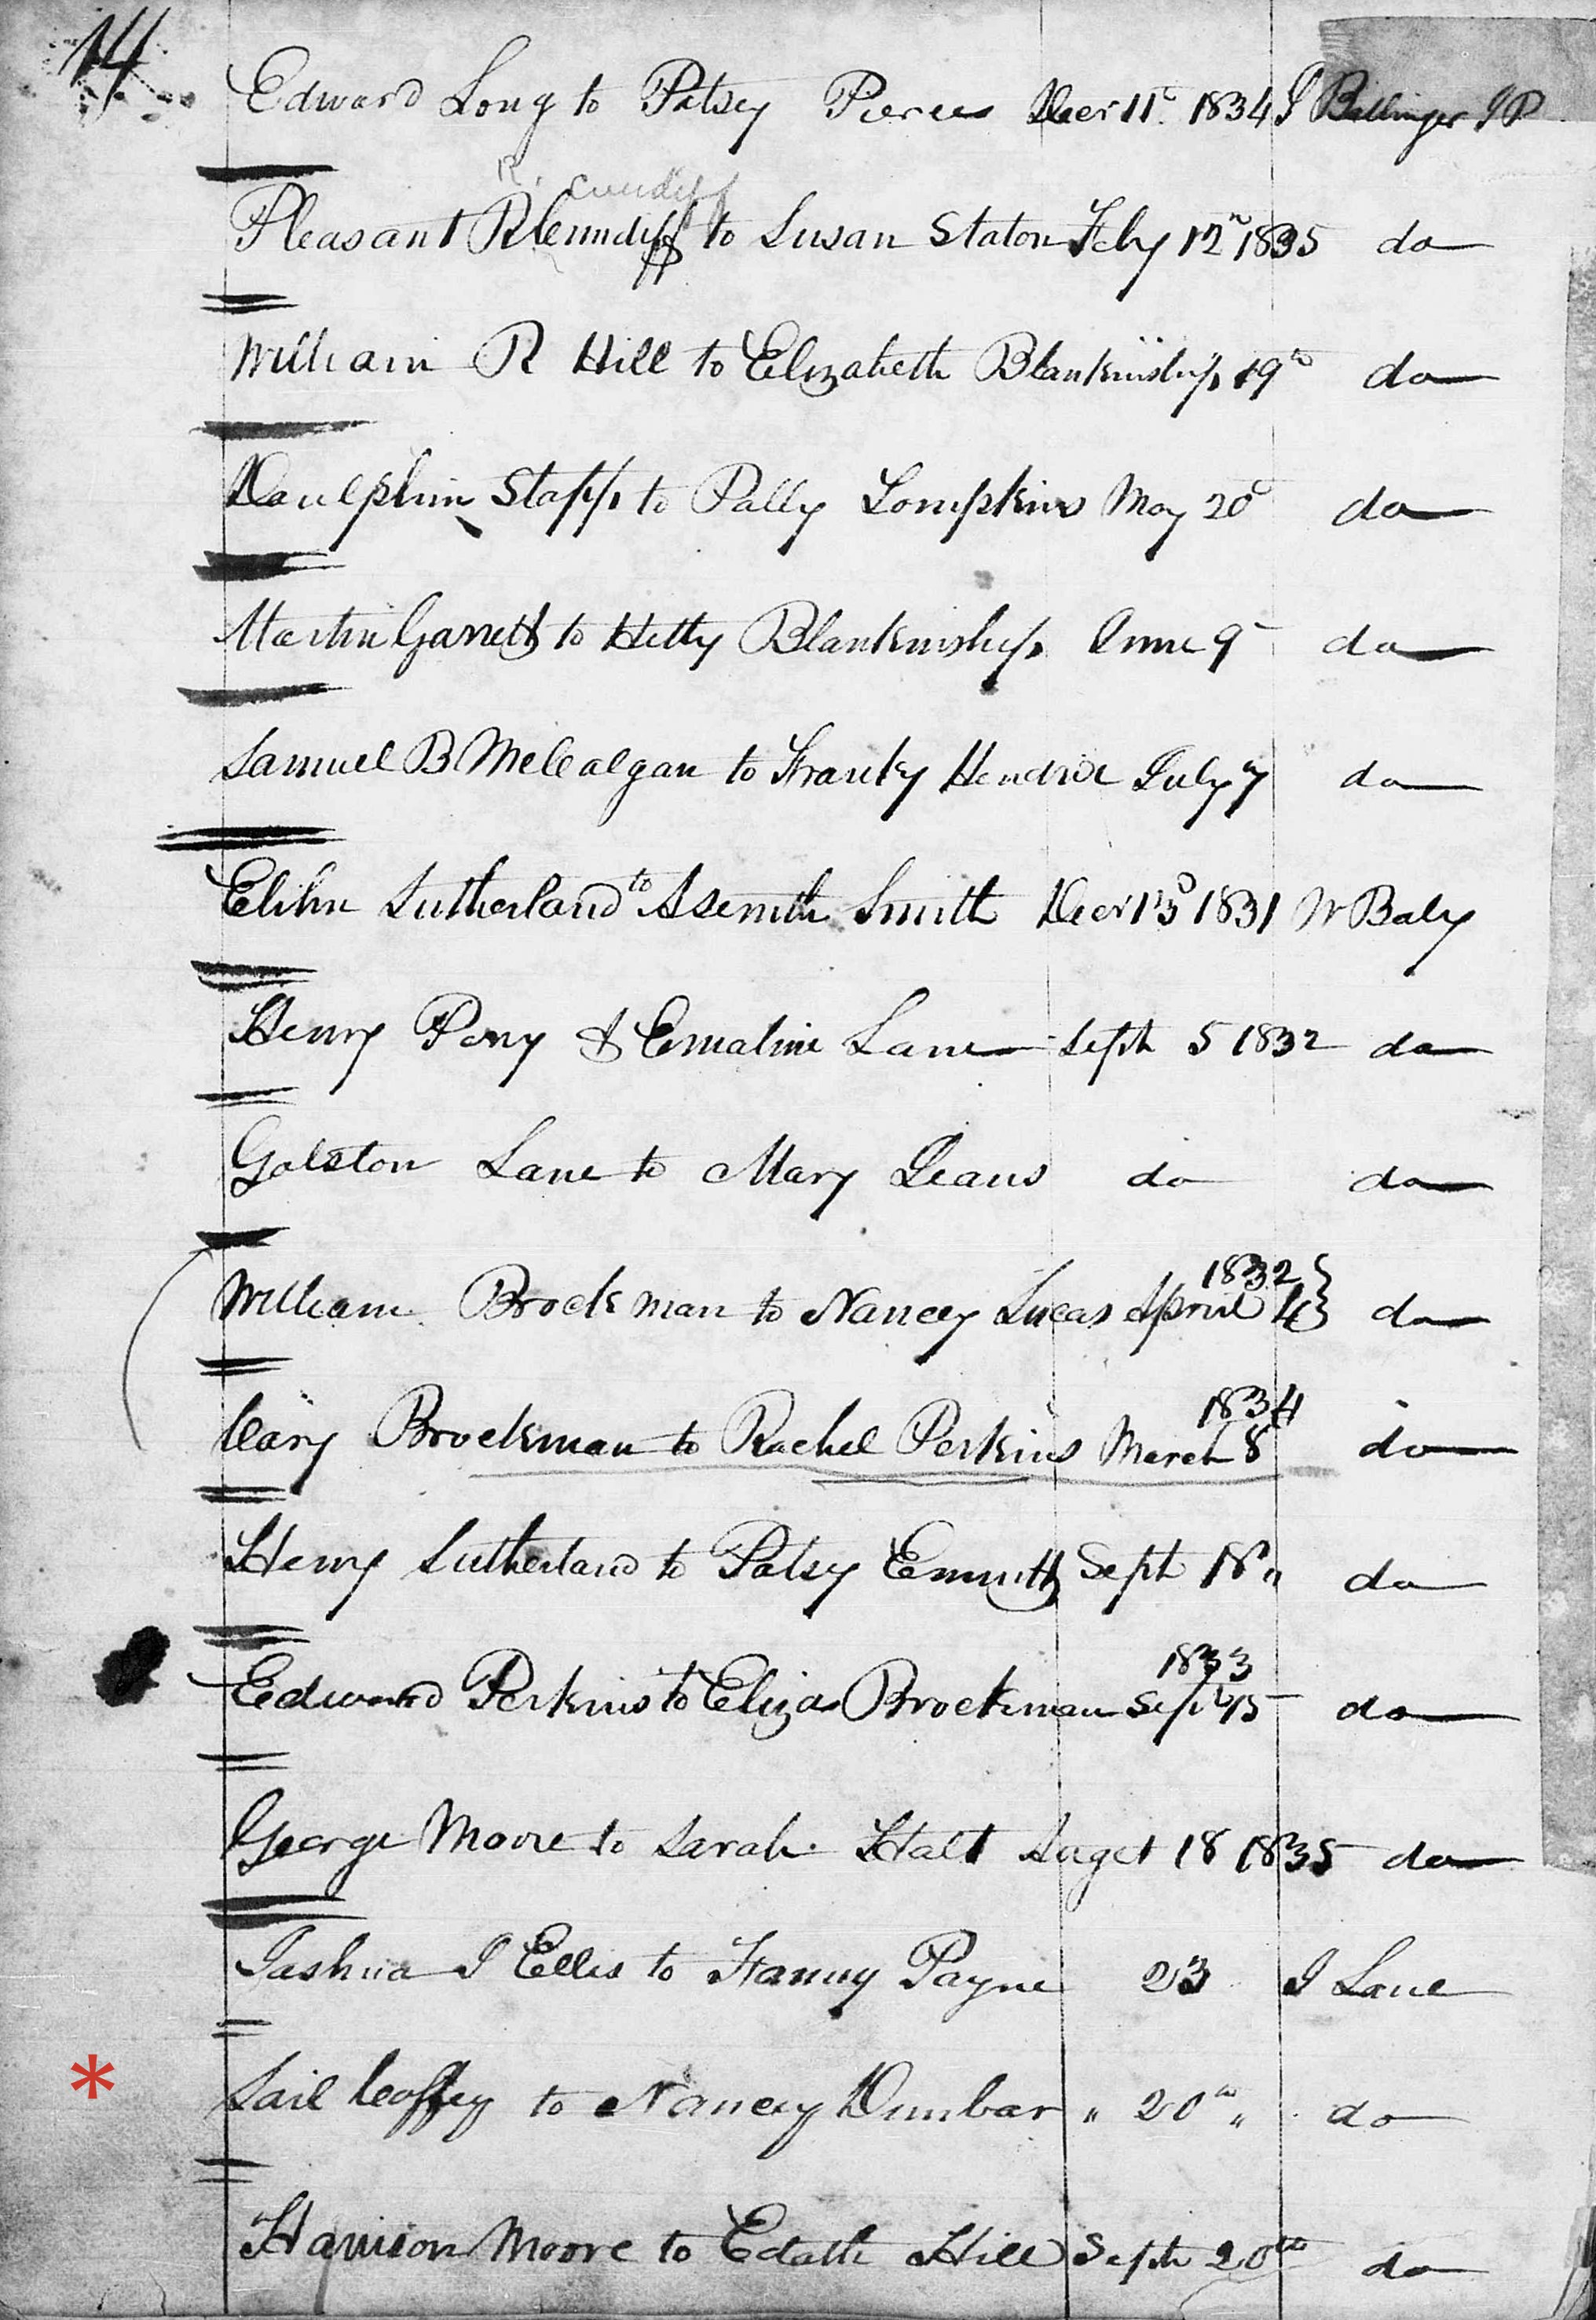 14
Edward Long to Patsey Pierces Decr 11th 1834 J Ballinger JP
R. Cundiff
Pleasant R Cunndiff to Susan Staton Feby 12th 1835 do
William R Hill to Elizabeth Blankinship 19th do
Daulphin Stapp to Polly Tompkins May 20th do
Martin Garrett to Hetty Blankinship June 9 do
Samuel B McCalgan to Franky Hendrix July 7 do
Elihu Sutherland to Asenith Smith Decr 13th 1831 W Baly
Henry Perry & Emaline Lane Sept 5 1832 do
Golston Lane to Mary Deans do do
1832
William Brockman to Nancy Lucas April 4 } do
1834
Cary Brockman to Rachel Perkins March 8 do
Henry Sutherland to Patsy Emmitt Sept 18 " do
1833
Edward Perkins to Eliza Brockman Sept 15 do
George Moore to Sarah Halt Augst 18 1835 do
Jashua J Ellis to Fanny Payne 23 J Lane
* Sail Coffey to Nancy Dunbar " 20th " do
Harrison Moore to Edath Hill Sept 20th do